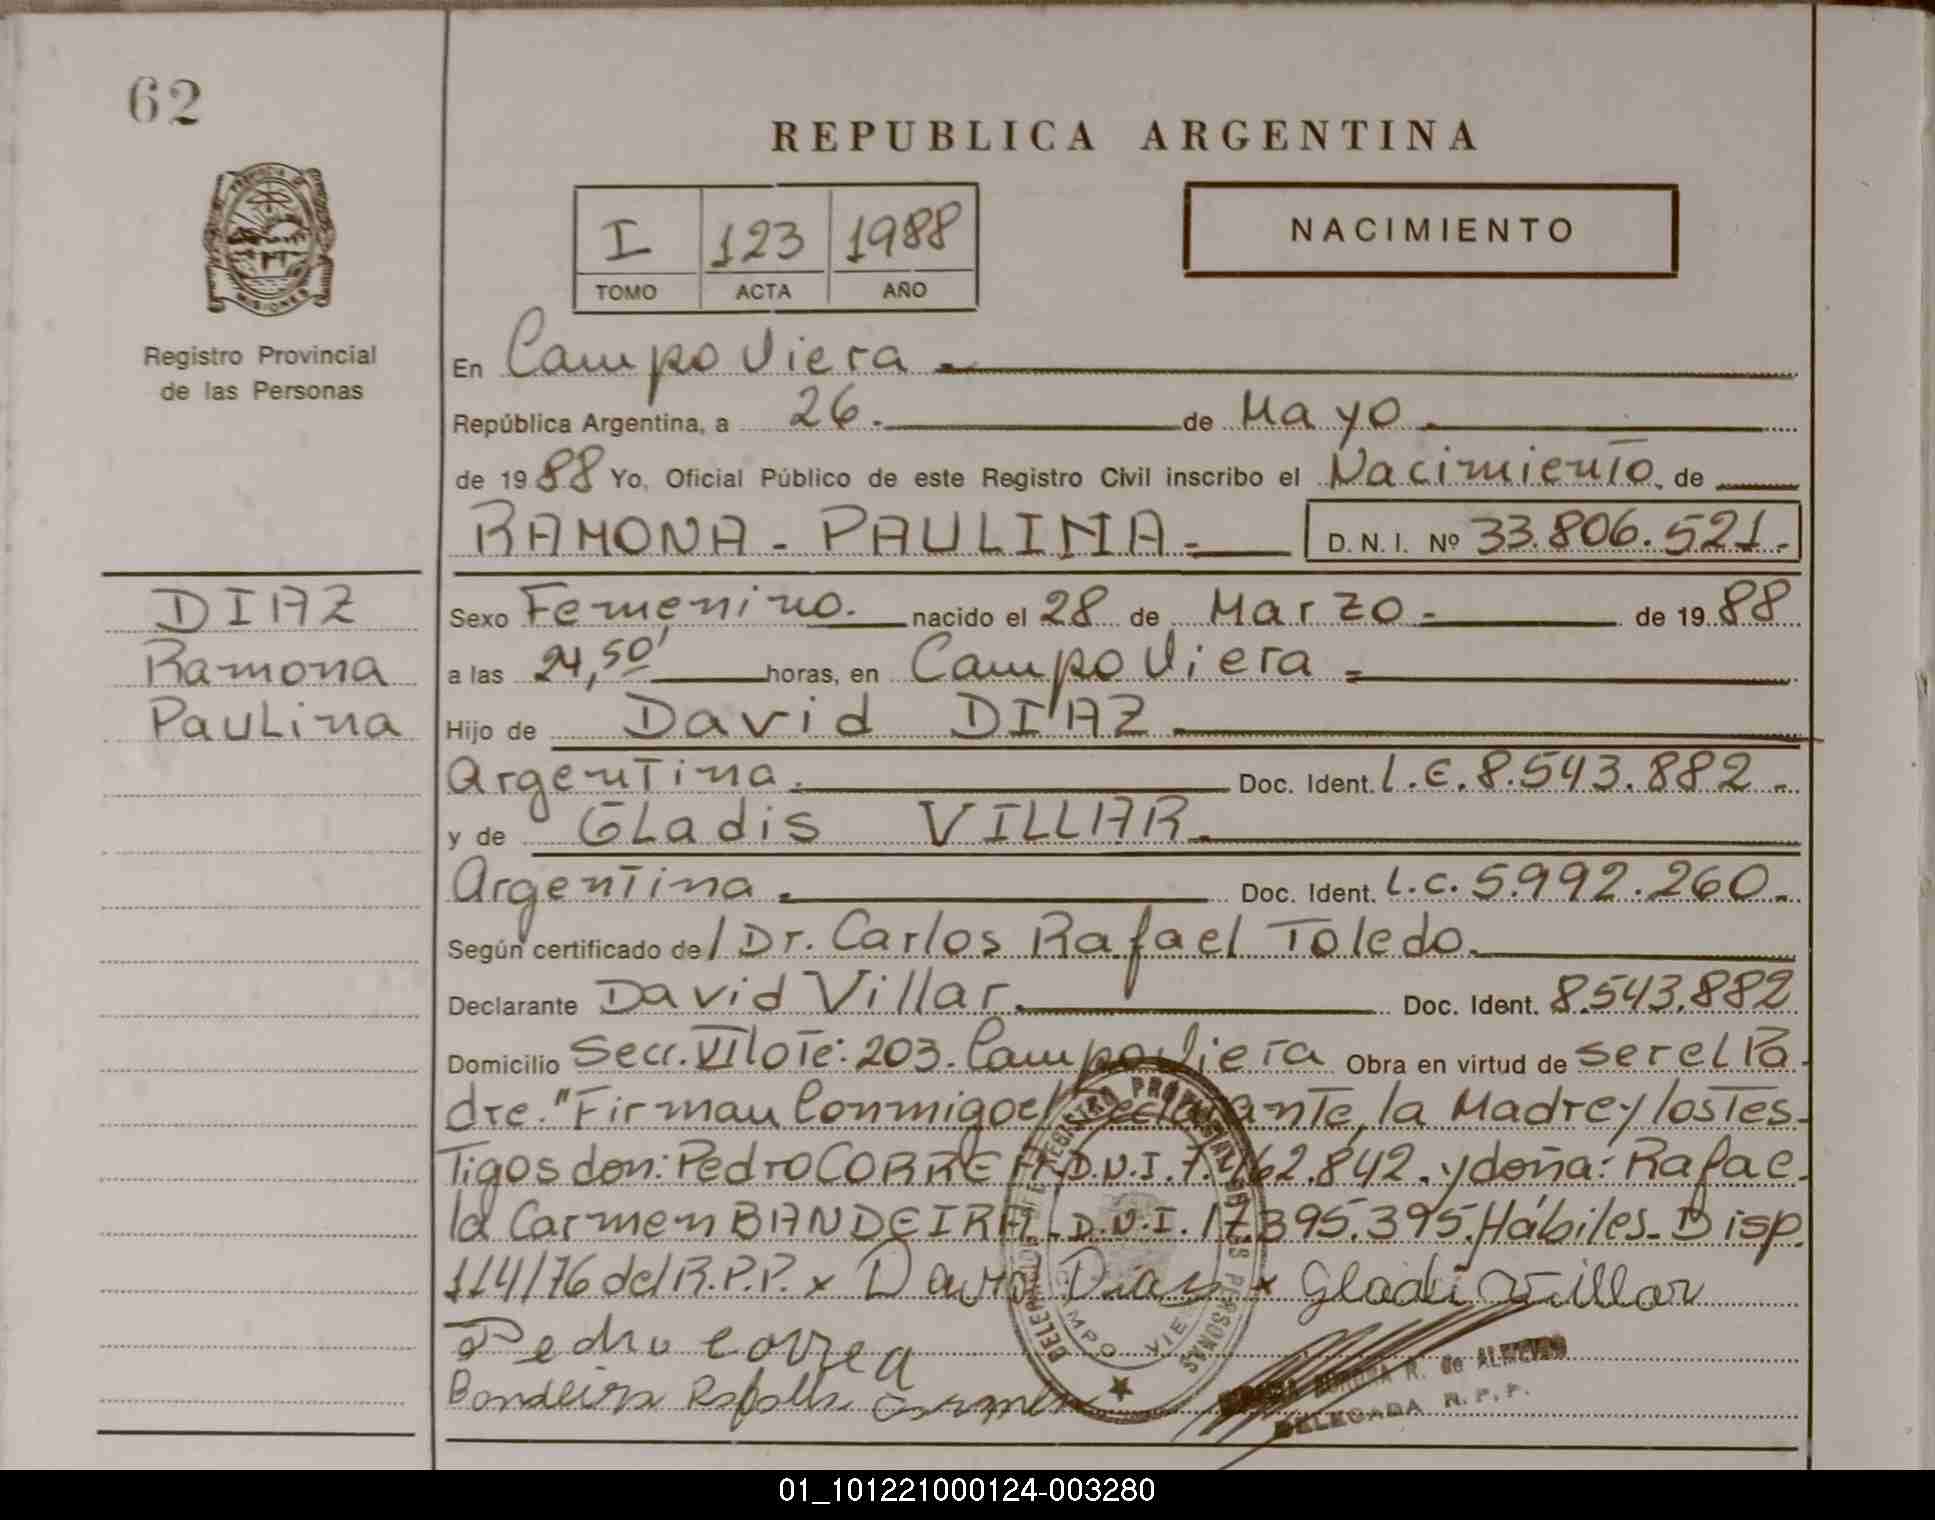 62
REPUBLICA ARGENTINA
I 123 1988
TOMO ACTA AÑO
NACIMIENTO
PROVINCIA DE MISIONES
Registro Provincial
de las Personas
DIAZ
Ramona
Paulina
En Campo Viera
República Argentina, a 26. de Mayo
de 1988 Yo, Oficial Público de este Registro Civil inscribo el Nacimiento, de
RAMONA - PAULINA - D.N.I. Nº 33.806.521.-
Sexo Femenino. nacido el 28 de Marzo - de 1988
a las 24,50' horas, en Campo Viera =
Hijo de David DIAZ
Argentina. Doc. Ident. L.E. 8.543.882 -
y de Gladis VILLAR.
Argentina. Doc. Ident. L.C. 5.992.260 -
Según certificado de / Dr. Carlos Rafael Toledo.
Declarante David Villar. Doc. Ident. 8.543.882
Domicilio Secc. VI lote: 203. Campo Viera Obra en virtud de ser el Pa
dre." Firman Conmigo el Declarante, la Madre y los Tes-
Tigos don: Pedro CORREA D.N.I. 62.842. y doña: Rafae-
la Carmen BANDEIRA - D.N.I. 17.395.395. Hábiles - Disp.
114/76 del R.P.P. x David Diaz x Gladi Villar
Pedro Correa
Bandeira Rafaela Carmen
REGISTRO PROVINCIAL DE LAS PERSONAS
CAMPO VIERA
R. de
DELEGADA R.P.P.
01_101221000124-003280